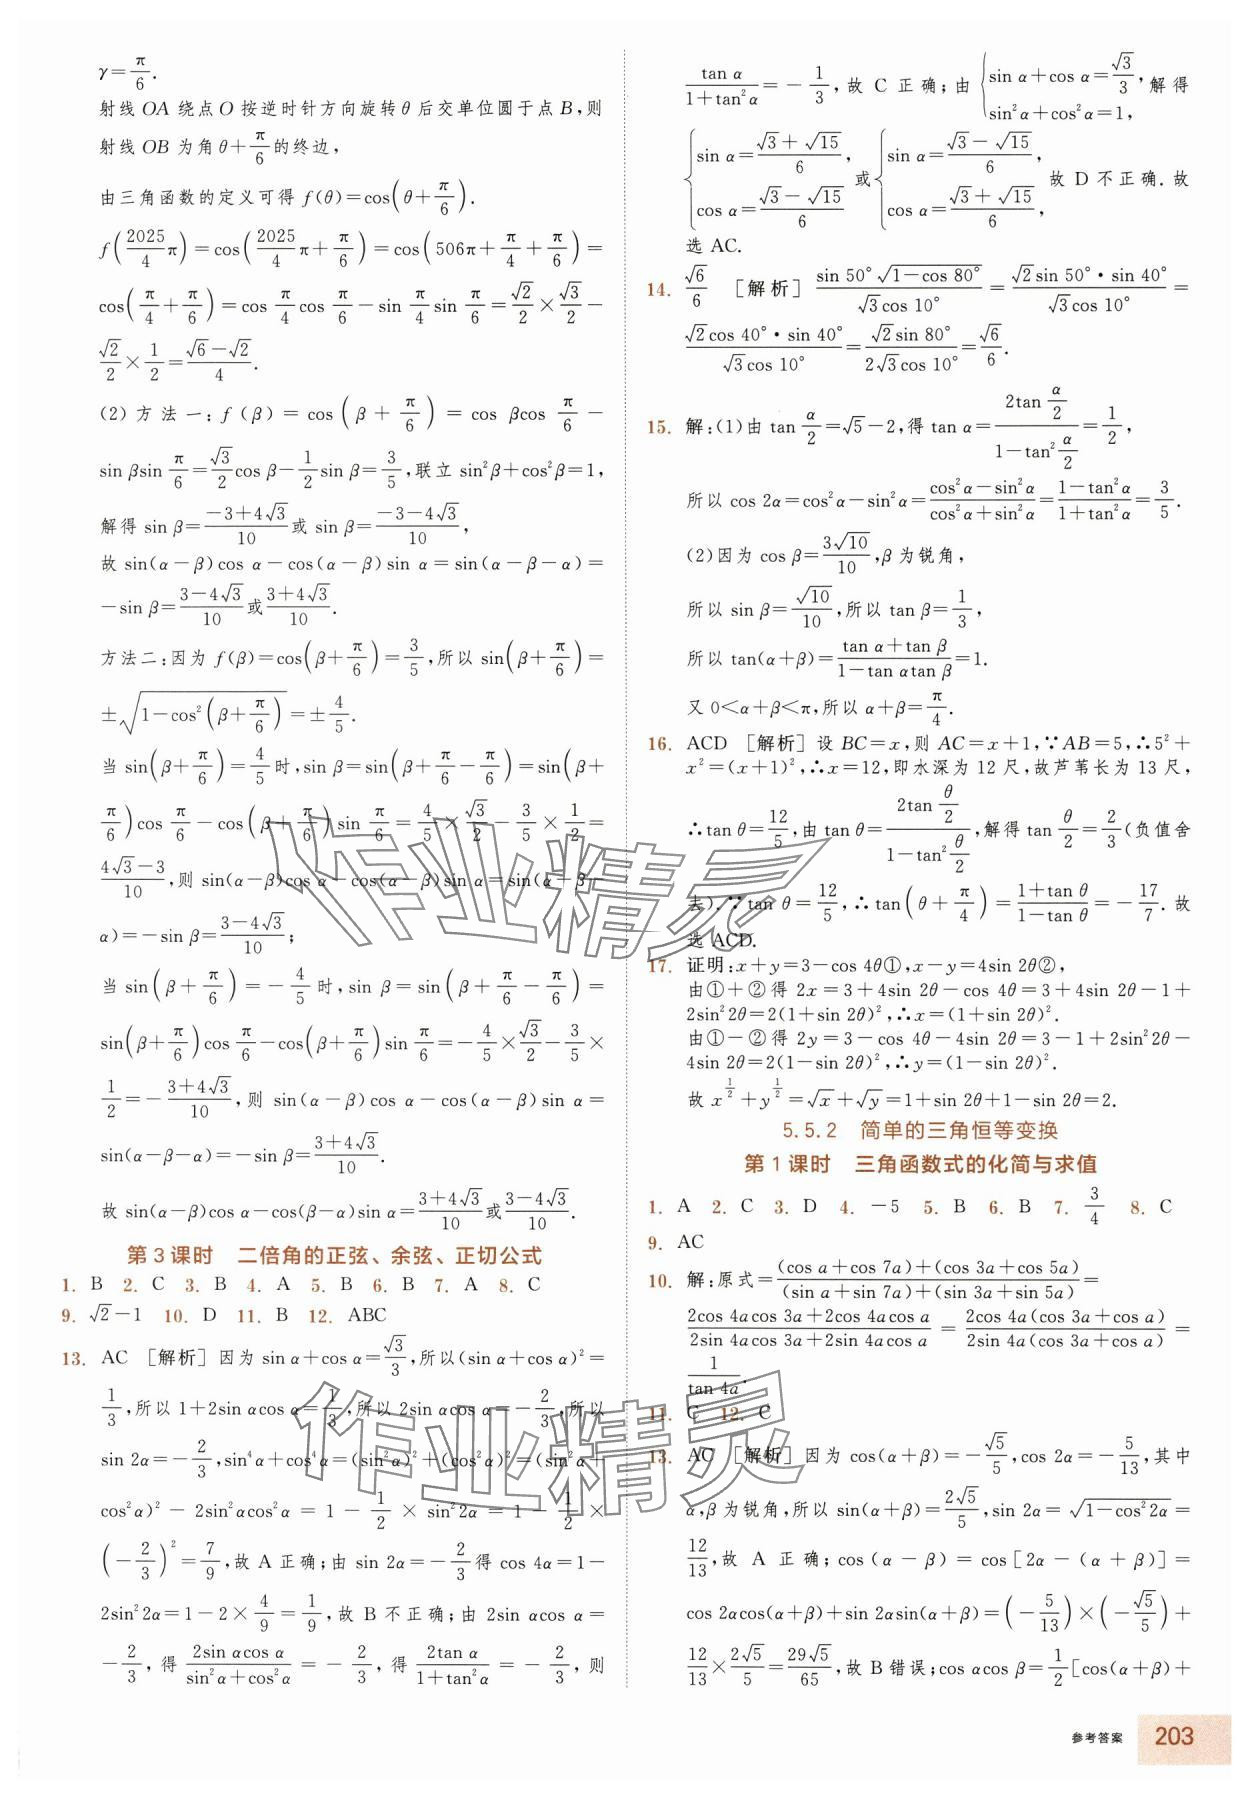 γ=π/6.
射线 OA 绕点 O 按逆时针方向旋转 θ 后交单位圆于点 B,则
射线 OB 为角 θ+π/6 的终边,
由三角函数的定义可得 f(θ)=cos(θ+π/6).
f(2025/4 π)=cos(2025/4 π+π/6)=cos(506π+π/4+π/6)=
cos(π/4+π/6)=cos π/4 cos π/6－sin π/4 sin π/6=√2/2×√3/2－
√2/2×1/2=(√6－√2)/4.
(2)方法一:f(β)=cos(β+π/6)=cos βcos π/6－
sin βsin π/6=√3/2 cos β－1/2 sin β=3/5,联立 sin²β+cos²β=1,
解得 sin β=(－3+4√3)/10 或 sin β=(－3－4√3)/10,
故 sin(α－β)cos α－cos(α－β)sin α=sin(α－β－α)=
－sin β=(3－4√3)/10 或 (3+4√3)/10.
方法二:因为 f(β)=cos(β+π/6)=3/5,所以 sin(β+π/6)=
±√(1－cos²(β+π/6))=±4/5.
当 sin(β+π/6)=4/5 时,sin β=sin(β+π/6－π/6)=sin(β+
π/6)cos π/6－cos(β+π/6)sin π/6=4/5×√3/2－3/5×1/2=
(4√3－3)/10,则 sin(α－β)cos α－cos(α－β)sin α=sin(α－β－
α)=－sin β=(3－4√3)/10;
当 sin(β+π/6)=－4/5 时,sin β=sin(β+π/6－π/6)=
sin(β+π/6)cos π/6－cos(β+π/6)sin π/6=－4/5×√3/2－3/5×
1/2=－(3+4√3)/10,则 sin(α－β)cos α－cos(α－β)sin α=
sin(α－β－α)=－sin β=(3+4√3)/10.
故 sin(α－β)cos α－cos(β－α)sin α=(3+4√3)/10 或 (3－4√3)/10.
第 3 课时 二倍角的正弦、余弦、正切公式
1. B 2. C 3. B 4. A 5. B 6. B 7. A 8. C
9. √2－1 10. D 11. B 12. ABC
13. AC [解析]因为 sin α+cos α=√3/3,所以(sin α+cos α)²=
1/3,所以 1+2sin αcos α=1/3,所以 2sin αcos α=－2/3,所以
sin 2α=－2/3,sin⁴α+cos⁴α=(sin²α)²+(cos²α)²=(sin²α+
cos²α)²－2sin²αcos²α=1－1/2×sin²2α=1－1/2×
(－2/3)²=7/9,故 A 正确;由 sin 2α=－2/3 得 cos 4α=1－
2sin²2α=1－2×4/9=1/9,故 B 不正确;由 2sin αcos α=
－2/3,得 2sin αcos α/(sin²α+cos²α)=－2/3,得 2tan α/(1+tan²α)=－2/3,则
tan α/(1+tan²α)=－1/3,故 C 正确;由 {sin α+cos α=√3/3, sin²α+cos²α=1, 解得
{sin α=(√3+√15)/6, cos α=(√3－√15)/6 或 {sin α=(√3－√15)/6, cos α=(√3+√15)/6, 故 D 不正确.故
选 AC.
14. √6/6 [解析] sin 50°√(1－cos 80°)/(√3cos 10°)=√2sin 50°·sin 40°/(√3cos 10°)=
√2cos 40°·sin 40°/(√3cos 10°)=√2sin 80°/(2√3cos 10°)=√6/6.
15. 解:(1)由 tan α/2=√5－2,得 tan α=2tan(α/2)/(1－tan²(α/2))=1/2,
所以 cos 2α=cos²α－sin²α=(cos²α－sin²α)/(cos²α+sin²α)=(1－tan²α)/(1+tan²α)=3/5.
(2)因为 cos β=3√10/10,β 为锐角,
所以 sin β=√10/10,所以 tan β=1/3,
所以 tan(α+β)=(tan α+tan β)/(1－tan αtan β)=1.
又 0<α+β<π,所以 α+β=π/4.
16. ACD [解析]设 BC=x,则 AC=x+1,∵AB=5,∴5²+
x²=(x+1)²,∴x=12,即水深为 12 尺,故芦苇长为 13 尺,
∴tan θ=12/5,由 tan θ=2tan(θ/2)/(1－tan²(θ/2)),解得 tan θ/2=2/3(负值舍
去).∵tan θ=12/5,∴tan(θ+π/4)=(1+tan θ)/(1－tan θ)=－17/7.故
选 ACD.
17. 证明:x+y=3－cos 4θ①,x－y=4sin 2θ②,
由①+②得 2x=3+4sin 2θ－cos 4θ=3+4sin 2θ－1+
2sin²2θ=2(1+sin 2θ)²,∴x=(1+sin 2θ)².
由①－②得 2y=3－cos 4θ－4sin 2θ=3－1+2sin²2θ－
4sin 2θ=2(1－sin 2θ)²,∴y=(1－sin 2θ)².
故 x^(1/2)+y^(1/2)=√x+√y=1+sin 2θ+1－sin 2θ=2.
5.5.2 简单的三角恒等变换
第 1 课时 三角函数式的化简与求值
1. A 2. C 3. D 4. －5 5. B 6. B 7. 3/4 8. C
9. AC
10. 解:原式=((cos a+cos 7a)+(cos 3a+cos 5a))/((sin a+sin 7a)+(sin 3a+sin 5a))=
(2cos 4acos 3a+2cos 4acos a)/(2sin 4acos 3a+2sin 4acos a)=2cos 4a(cos 3a+cos a)/(2sin 4a(cos 3a+cos a))=
1/tan 4a.
11. C 12. C
13. AC [解析]因为 cos(α+β)=－√5/5,cos 2α=－5/13,其中
α,β 为锐角,所以 sin(α+β)=2√5/5,sin 2α=√(1－cos²2α)=
12/13,故 A 正确;cos(α－β)=cos[2α－(α+β)]=
cos 2αcos(α+β)+sin 2αsin(α+β)=(－5/13)×(－√5/5)+
12/13×2√5/5=29√5/65,故 B 错误;cos αcos β=1/2[cos(α+β)+
参考答案 203
作业精灵
作业精灵